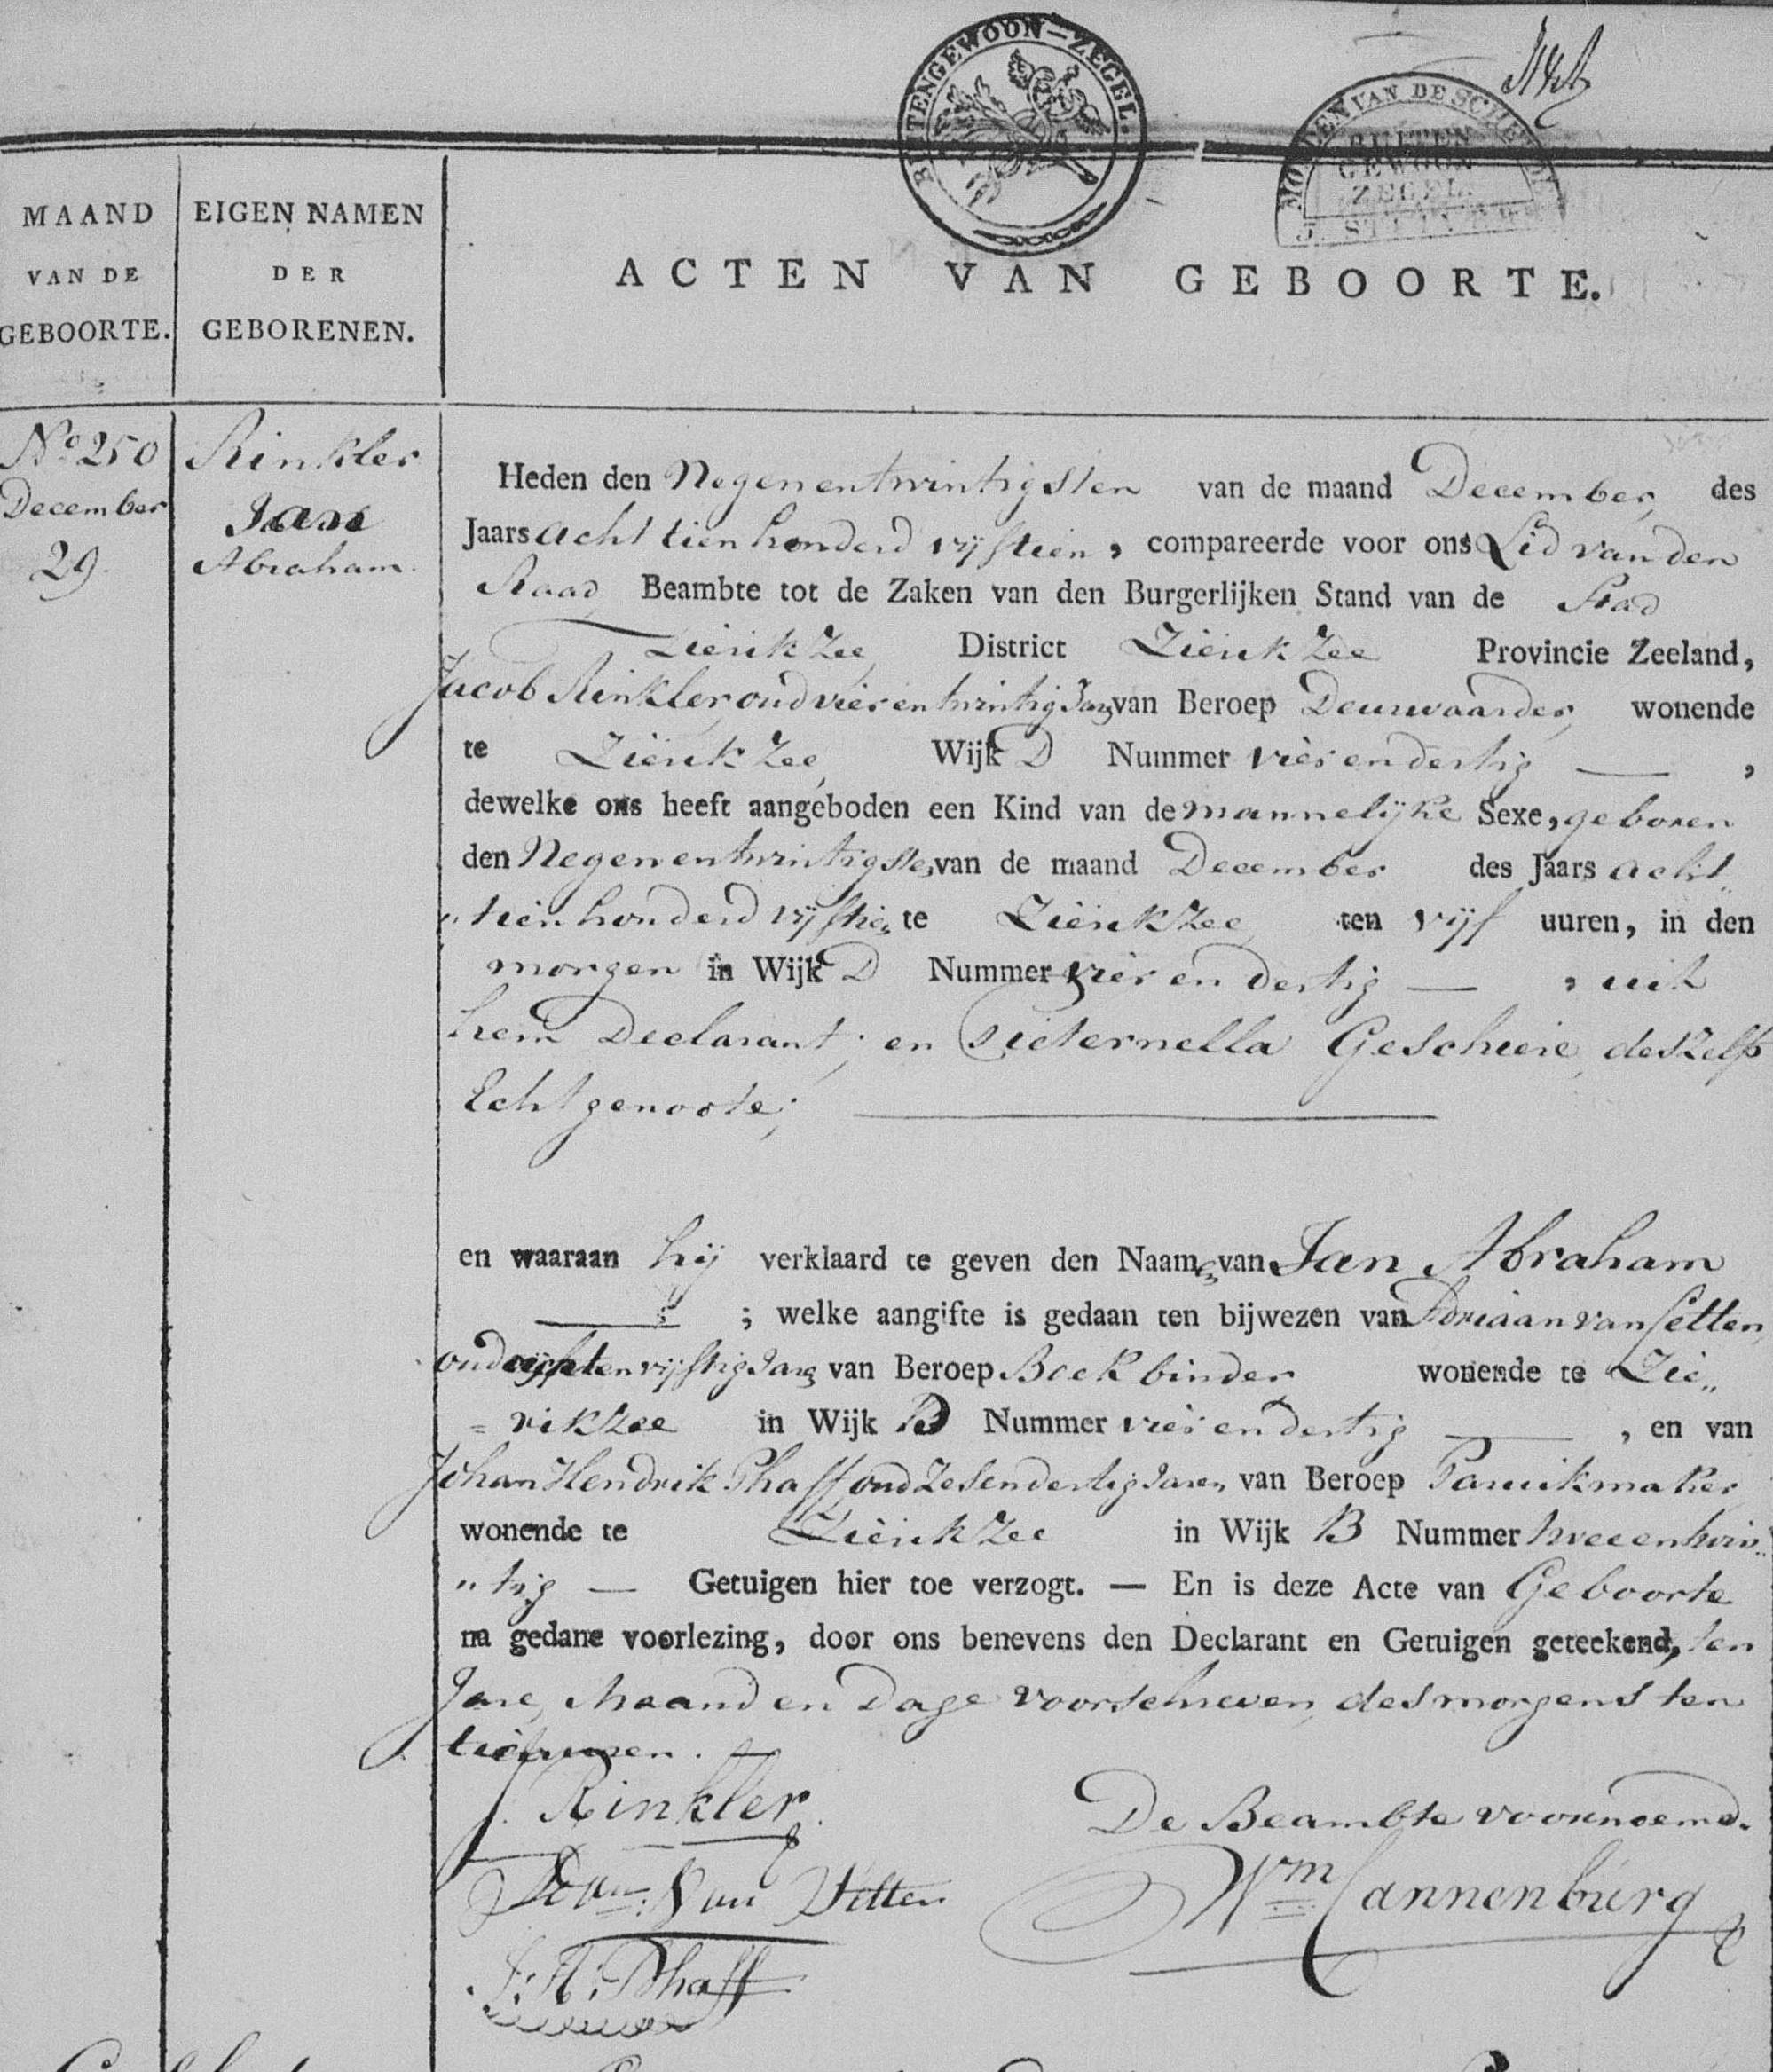 BUITENGEWOON-ZEGEL.
MONDEN VAN DE SCHELDE
BUITEN
GEWOON
ZEGEL.
MAAND
VAN DE
GEBOORTE.
EIGEN NAMEN
DER
GEBORENEN.
ACTEN VAN GEBOORTE.
No 250
December
29.
Rinkler
Jan
Abraham.
Heden den Negenentwintigsten van de maand December, des
Jaars acht tien honderd vijftien, compareerde voor ons Lid van den
Raad, Beambte tot de Zaken van den Burgerlijken Stand van de Stad
Zierikzee, District Zierikzee Provincie Zeeland,
Jacob Rinkler, oud vier en twintig Jaar van Beroep Deurwaarder, wonende
te Zierikzee, Wijk D Nummer vier en dertig — ,
dewelke ons heeft aangeboden een Kind van de mannelijke Sexe, geboren
den Negenentwintigsten van de maand December des Jaars acht„
„tien honderd vijftien te Zierikzee, ten vijf uuren, in den
morgen in Wijk D Nummer vier en dertig — , uit
hem Declarant; en Pieternella Geschiere, deszelfs
Echtgenoote; —
en waaraan hij verklaard te geven den Naamen van Jan Abraham
— ; welke aangifte is gedaan ten bijwezen van Adriaan van Setten,
oud en vijftig Jaren van Beroep Boekbinder wonende te Zie„
= rikzee in Wijk B Nummer vier en dertig — , en van
Johan Hendrik Phaff oud Zesendertig Jaren van Beroep Paruikmaker,
wonende te Zierikzee in Wijk B Nummer tweeentwin„
„tig — Getuigen hier toe verzogt. — En is deze Acte van Geboorte
na gedane voorlezing, door ons benevens den Declarant en Getuigen geteekend, ten
Jare, Maand en Dage voorschreven, des morgens ten
tien uuren. —
J. Rinkler.
De Beambte voornoemd.
Van Setten
Wm Cannenburg
J: H: Phaff